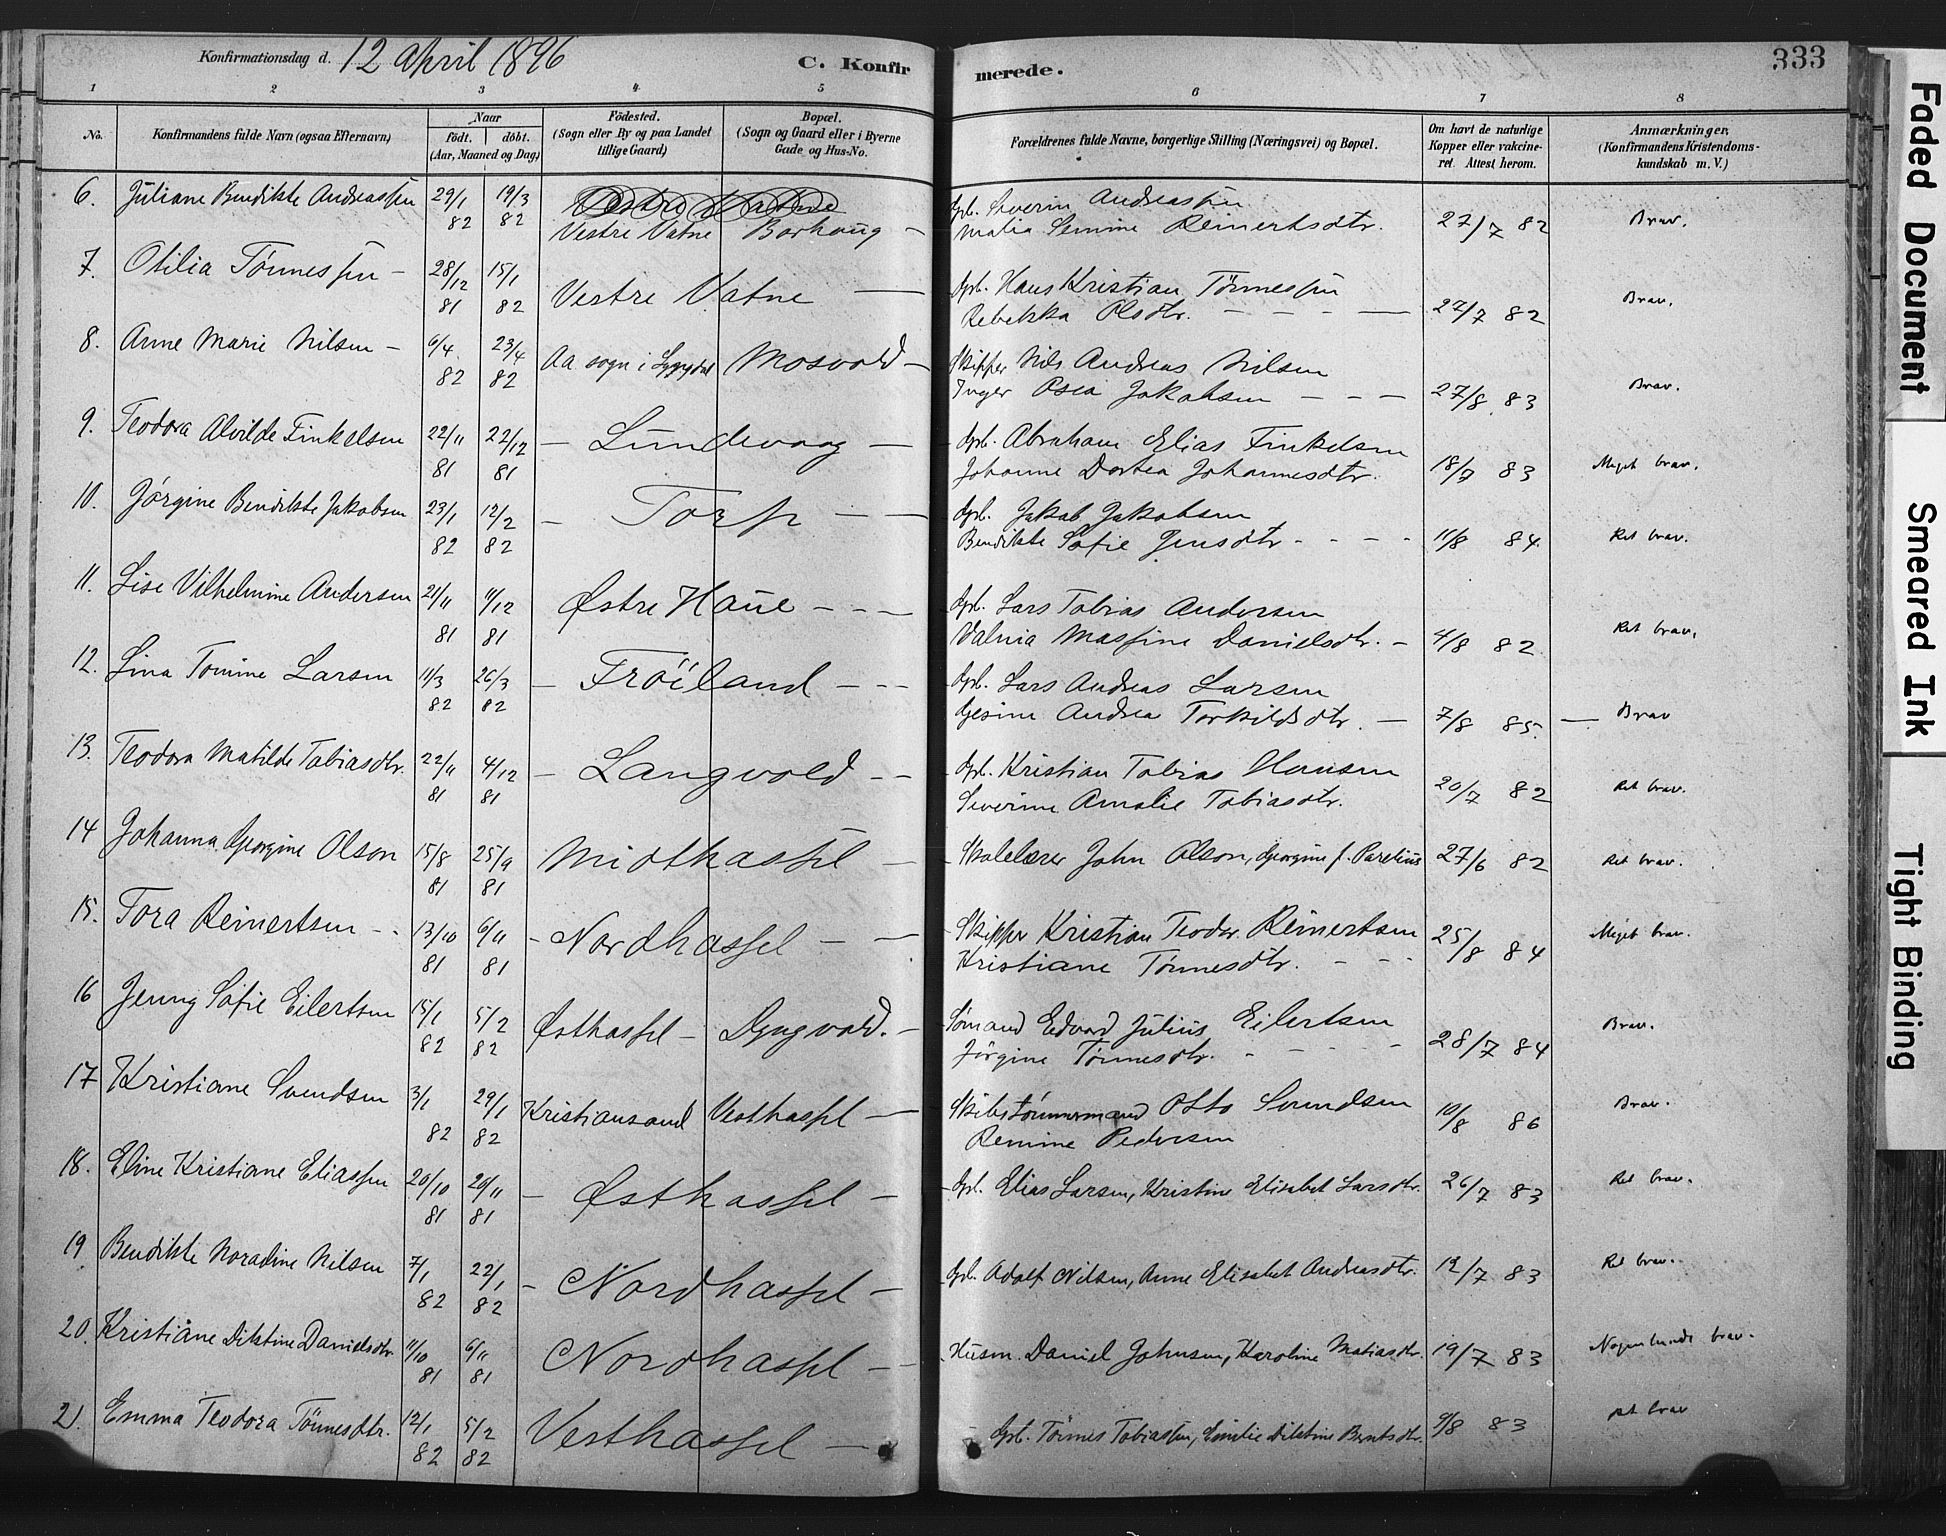 Konfirmationsdag d. 12 april 1896
C. Konfir merede.
333
1 2 3 4 5 6 7 8
No.
Konfirmandens fulde Navn (ogsaa Efternavn)
Naar
født. døbt.
(Aar, Maaned og Dag)
Födested.
(Sogn eller By og paa Landet
tillige Gaard)
Bopæl.
(Sogn og Gaard eller i Byerne
Gade og Hus-No.
Forældrenes fulde Navne, borgerlige Stilling (Næringsvei) og Bopæl.
Om havt de naturlige
Kopper eller vakcine-
ret. Attest herom.
Anmærkninger,
(Konfirmandens Kristendoms-
kundskab m. V.)
6. Juliane Bendikte Andreassen 29/1 82 19/3 82 Vestre Vatne Borhaug - Gpb. Severin Andreassen
Malia Semine Reinertsdtr. 27/7 82 Brav.
7. Otilia Tönnessen - 28/12 81 15/1 82 Vestre Vatne — Gpb. Hans Kristian Tönnessen
Rebekka Olsdtr. - - - — 27/7 82 Brav.
8. Anne Marie Nilsen - 6/4 82 23/4 82 Aa sogn i Lyngdal Mosvold - Skipper Nils Andreas Nilsen
Inger Osea Jakobsen - - - 27/8 83 Brav.
9. Teodora Alvilde Finkelsen 22/11 81 22/12 81 - Lundevaag - Gpb. Abraham Elias Finkelsen
Johanne Dortea Johannesdtr. 18/7 83 Meget brav.
10. Jörgine Bendikte Jakobsen 23/1 82 12/2 82 - Torp - - Gpb. Jakob Jakobsen
Bendikte Sofie Jensdtr - - - - 11/8 84. Ret brav.
11. Lise Vilhelmine Andersen 21/11 81 11/12 81 Østre Haue - - - Gpb. Lars Tobias Andersen
Valnia Massine Danielsdtr. - 4/8 82 Ret brav.
12. Lina Tomine Larsen 11/3 82 26/3 82 - Fröiland - - - Gpb. Lars Andreas Larsen
Gesine Andrea Torkildsdtr. - 7/8 85. — Brav
13. Teodora Matilde Tobiasdtr. 22/11 81 4/12 81 - Langvold - - Gpb. Kristian Tobias Hansen
Severine Amalie Tobiasdtr. 20/7 82 Ret brav.
14 Johanna Georgine Olson 15/8 81 25/9 81 Midthassel - Skolelærer John Olson, Georgine f. Parelius 27/6 82 Ret brav.
15. Tora Reinertsen - - 13/10 81 6/11 81 - Nordhassel - - Skipper Kristian Teodor Reinertsen
Kristiane Tönnesdtr. - - - 25/8 84 Meget brav.
16 Jenny Sofie Eilertsen 15/1 82 5/2 82 Østhassel - Dyngvold. - Sömand Edvard Julius Eilertsen
Jörgine Tönnesdtr. - - - - 28/7 84 Brav.
17 Kristiane Svendsen 3/1 82 29/1 82 Kristiansand Vesthassel - Skibstömmermand Otto Svendsen
Remine Pedersen 10/8 86 Brav.
18. Eline Kristiane Eliassen 20/10 81 20/11 81 - Østhassel - Gpb. Elias Larsen, Kristine Elisabet Larsdtr. 26/7 83 Ret brav.
19 Bendikte Noradine Nilsen 7/1 82 22/1 82 - Nordhassel - Gpb. Adolf Nilsen, Anne Elisabet Andreasdtr. 12/7 83 Ret brav.
20. Kristiane Diktine Danielsdtr 11/10 81 6/11 81 Nordhassel - Husm. Daniel Johnsen, Karoline Matiasdtr. 19/7 83 Nogenlunde brav.
21. Emma Teodora Tönnesdtr. 12/1 82 5/2 82 Vesthassel - Gpb. Tönnes Tobiassen, Emilie Diktine Berntsdtr. 9/8 83 ret brav
Faded Document
Smeared Ink
Tight Binding